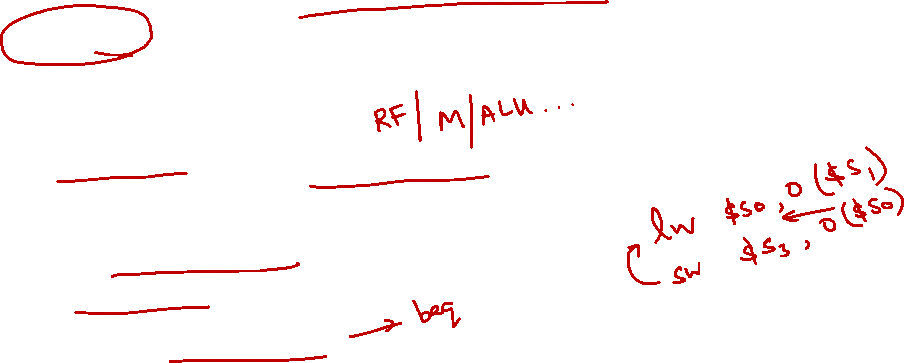 RF/M/ALU...
lw $s0, 0($s1)
sw $s3, 0($s0)
beq